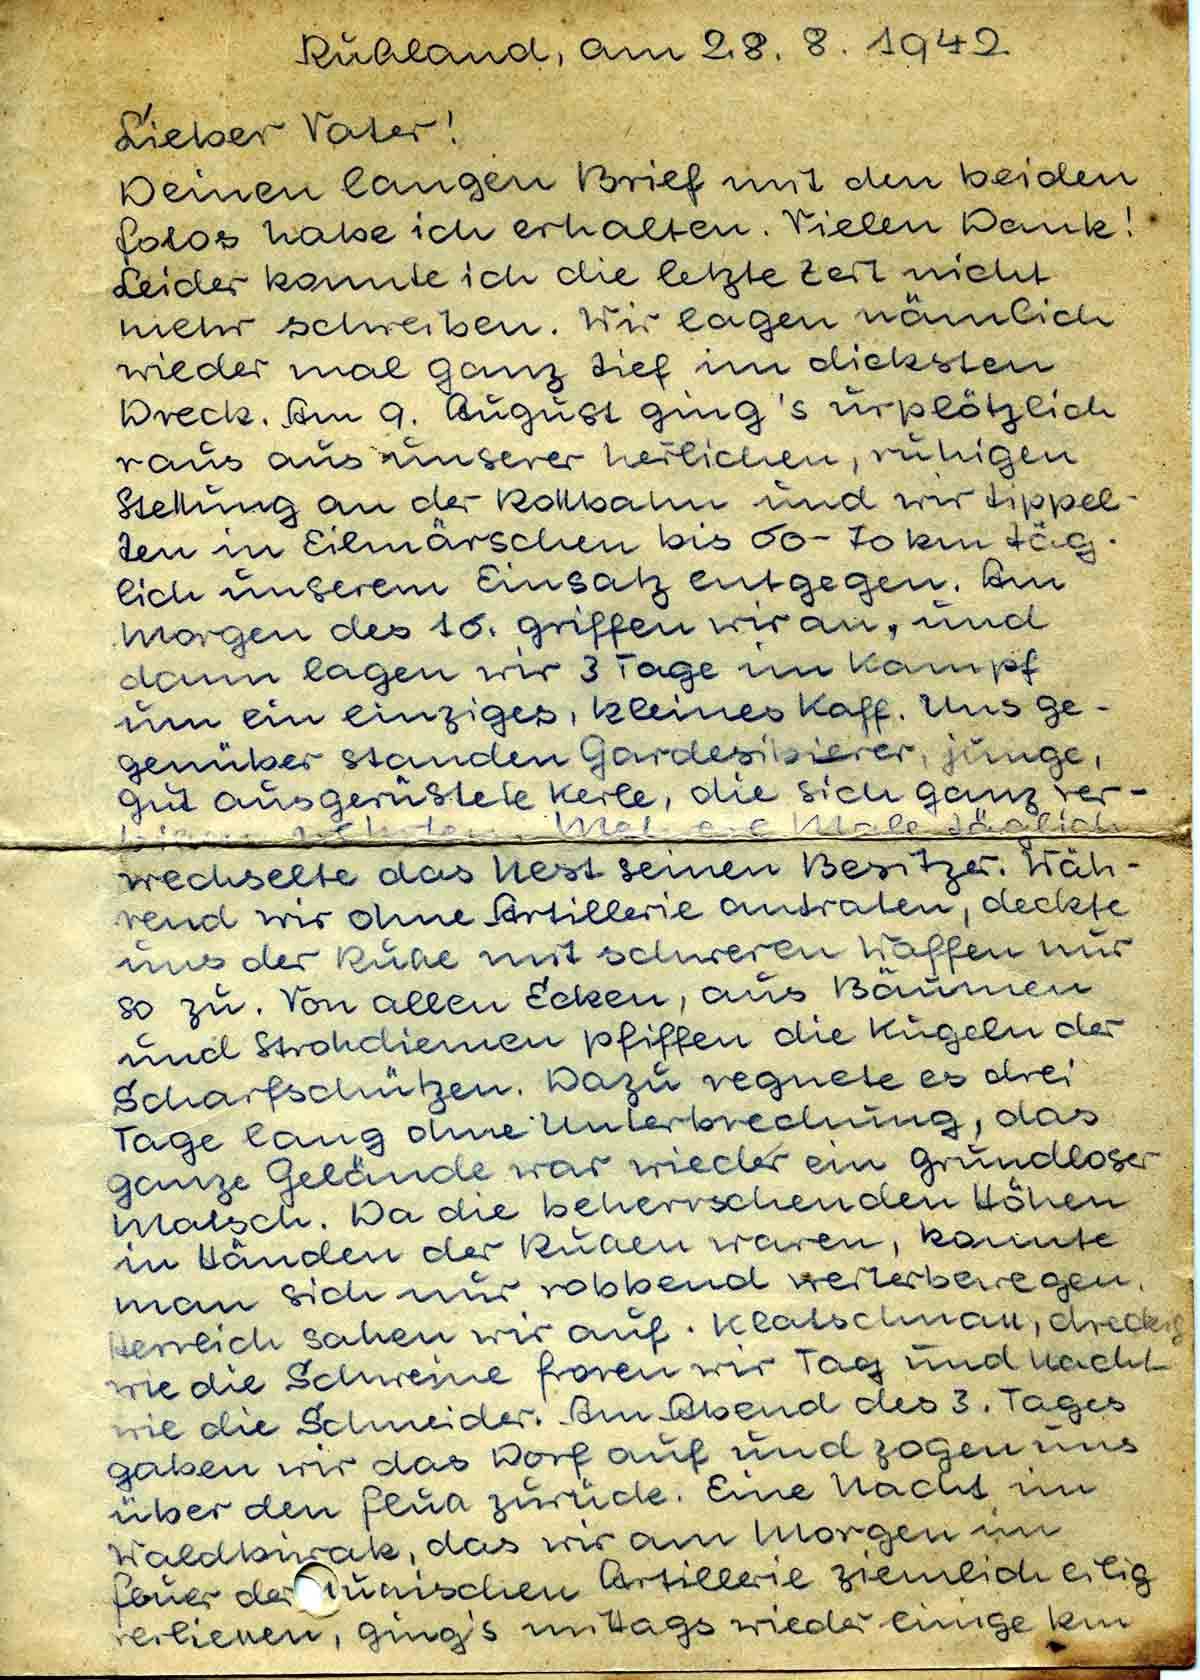 Rußland, am 28. 8. 1942
Lieber Vater!
Deinen langen Brief mit den beiden
Fotos habe ich erhalten. Vielen Dank!
Leider konnte ich die letzte Zeit nicht
mehr schreiben. Wir lagen nämlich
wieder mal ganz tief im dicksten
Dreck. Am 9. August ging's urplötzlich
raus aus unserer herlichen, ruhigen
Stellung an der Rollbahn und wir tippel-
ten in Eilmärschen bis 60-70 km täg-
lich unserem Einsatz entgegen. Am
Morgen des 16. griffen wir an, und
dann lagen wir 3 Tage im Kampf
um ein einziges, kleines Kaff. Uns ge-
genüber standen Gardesibierer, junge,
gut ausgerüstete Kerle, die sich ganz ver-
Male täglich
wechselte das Nest seinen Besitzer. Wäh-
rend wir ohne Artillerie antraten, deckte
uns der Ruße mit schweren Waffen nur
so zu. Von allen Ecken, aus Bäumen
und Strohdiemen pfiffen die Kugeln der
Scharfschützen. Dazu regnete es drei
Tage lang ohne Unterbrechung, das
ganze Gelände war wieder ein grundloser
Matsch. Da die beherrschenden Höhen
in Händen der Rußen waren, konnte
man sich nur robbend weiterbewegen.
Herrlich sahen wir auf. Klatschnaß, dreckig
wie die Schweine froren wir Tag und Nacht
wie die Schneider. Am Abend des 3. Tages
gaben wir das Dorf auf und zogen uns
über den Fluß zurück. Eine Nacht im
Waldbiwak, das wir am Morgen im
Feuer der rußischen Artillerie ziemlich eilig
verließen, ging's mittags wieder einige km